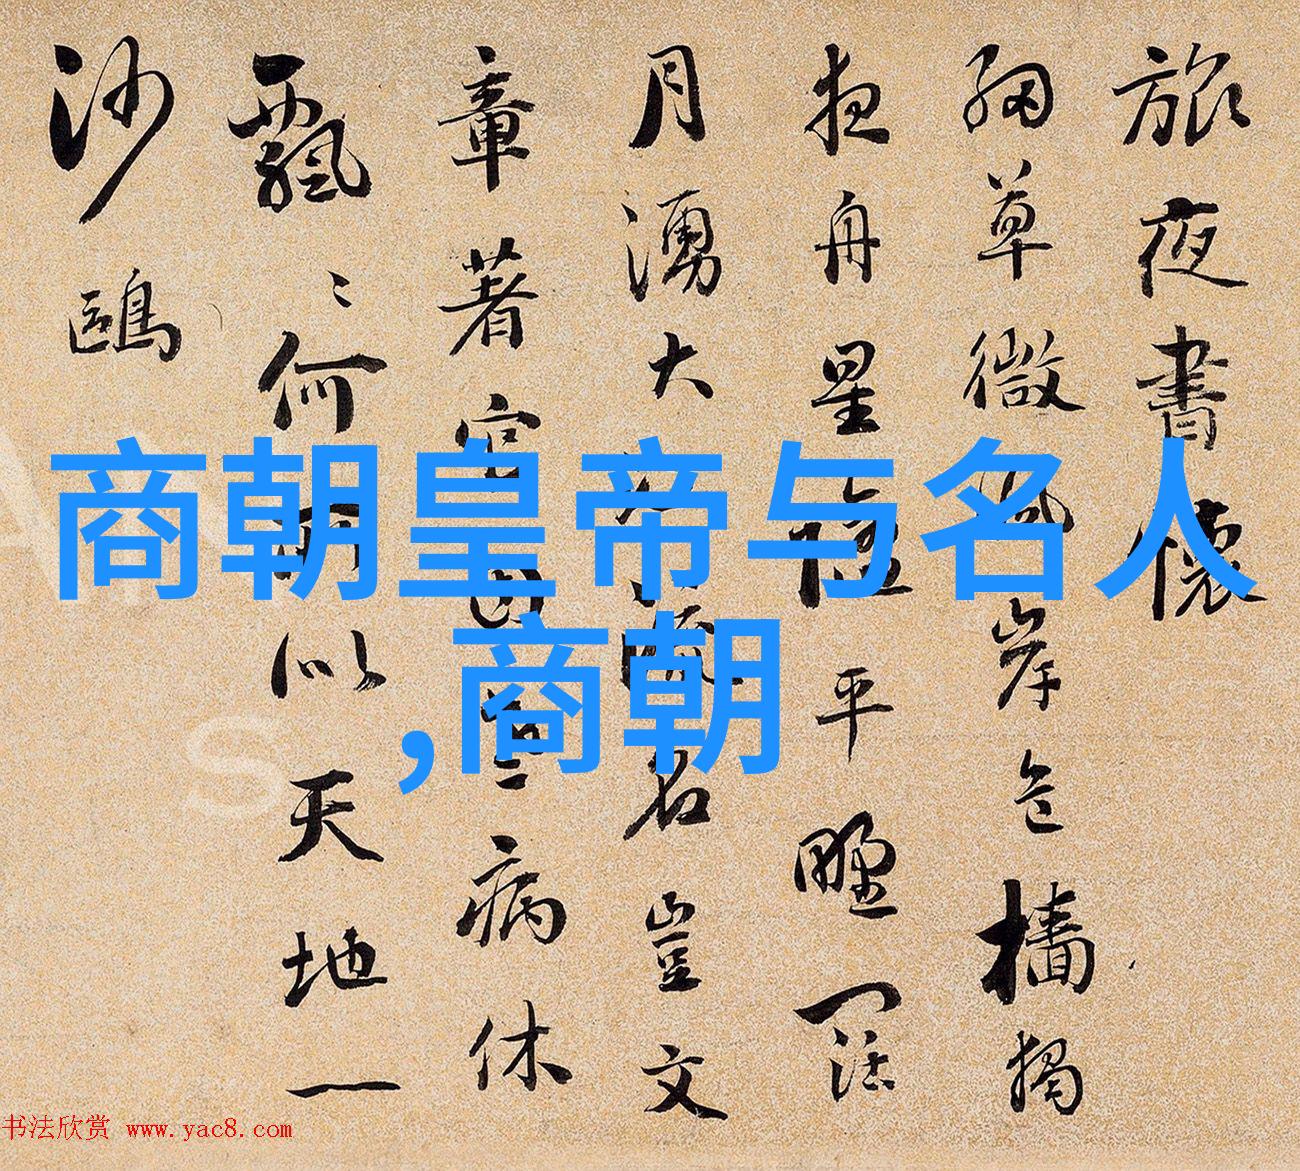 旅夜書懷
細草微風岸危檣獨
夜舟星平野闊
月湧大江流名豈文
章著官因老病休
飄〻何所似天地一
沙鷗
商朝皇帝与名人
,商朝
书法欣赏 www.yac8.com